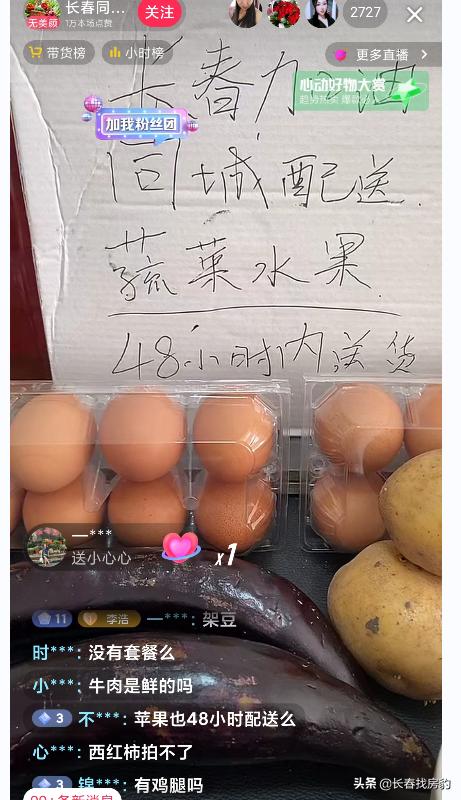 长春同...
1万本场点赞
无美颜
关注
2727
带货榜
小时榜
更多直播
心动好物大赏
趋势热卖 爆款必入
加我粉丝团
长春加油
同城配送
蔬菜水果
48小时内送货
一***
送小心心
x1
11 李浩 一***: 架豆
时***: 没有套餐么
小***: 牛肉是鲜的吗
3 不***: 苹果也48小时配送么
心***: 西红柿拍不了
3 锦***: 有鸡腿吗
头条 @长春找房豹